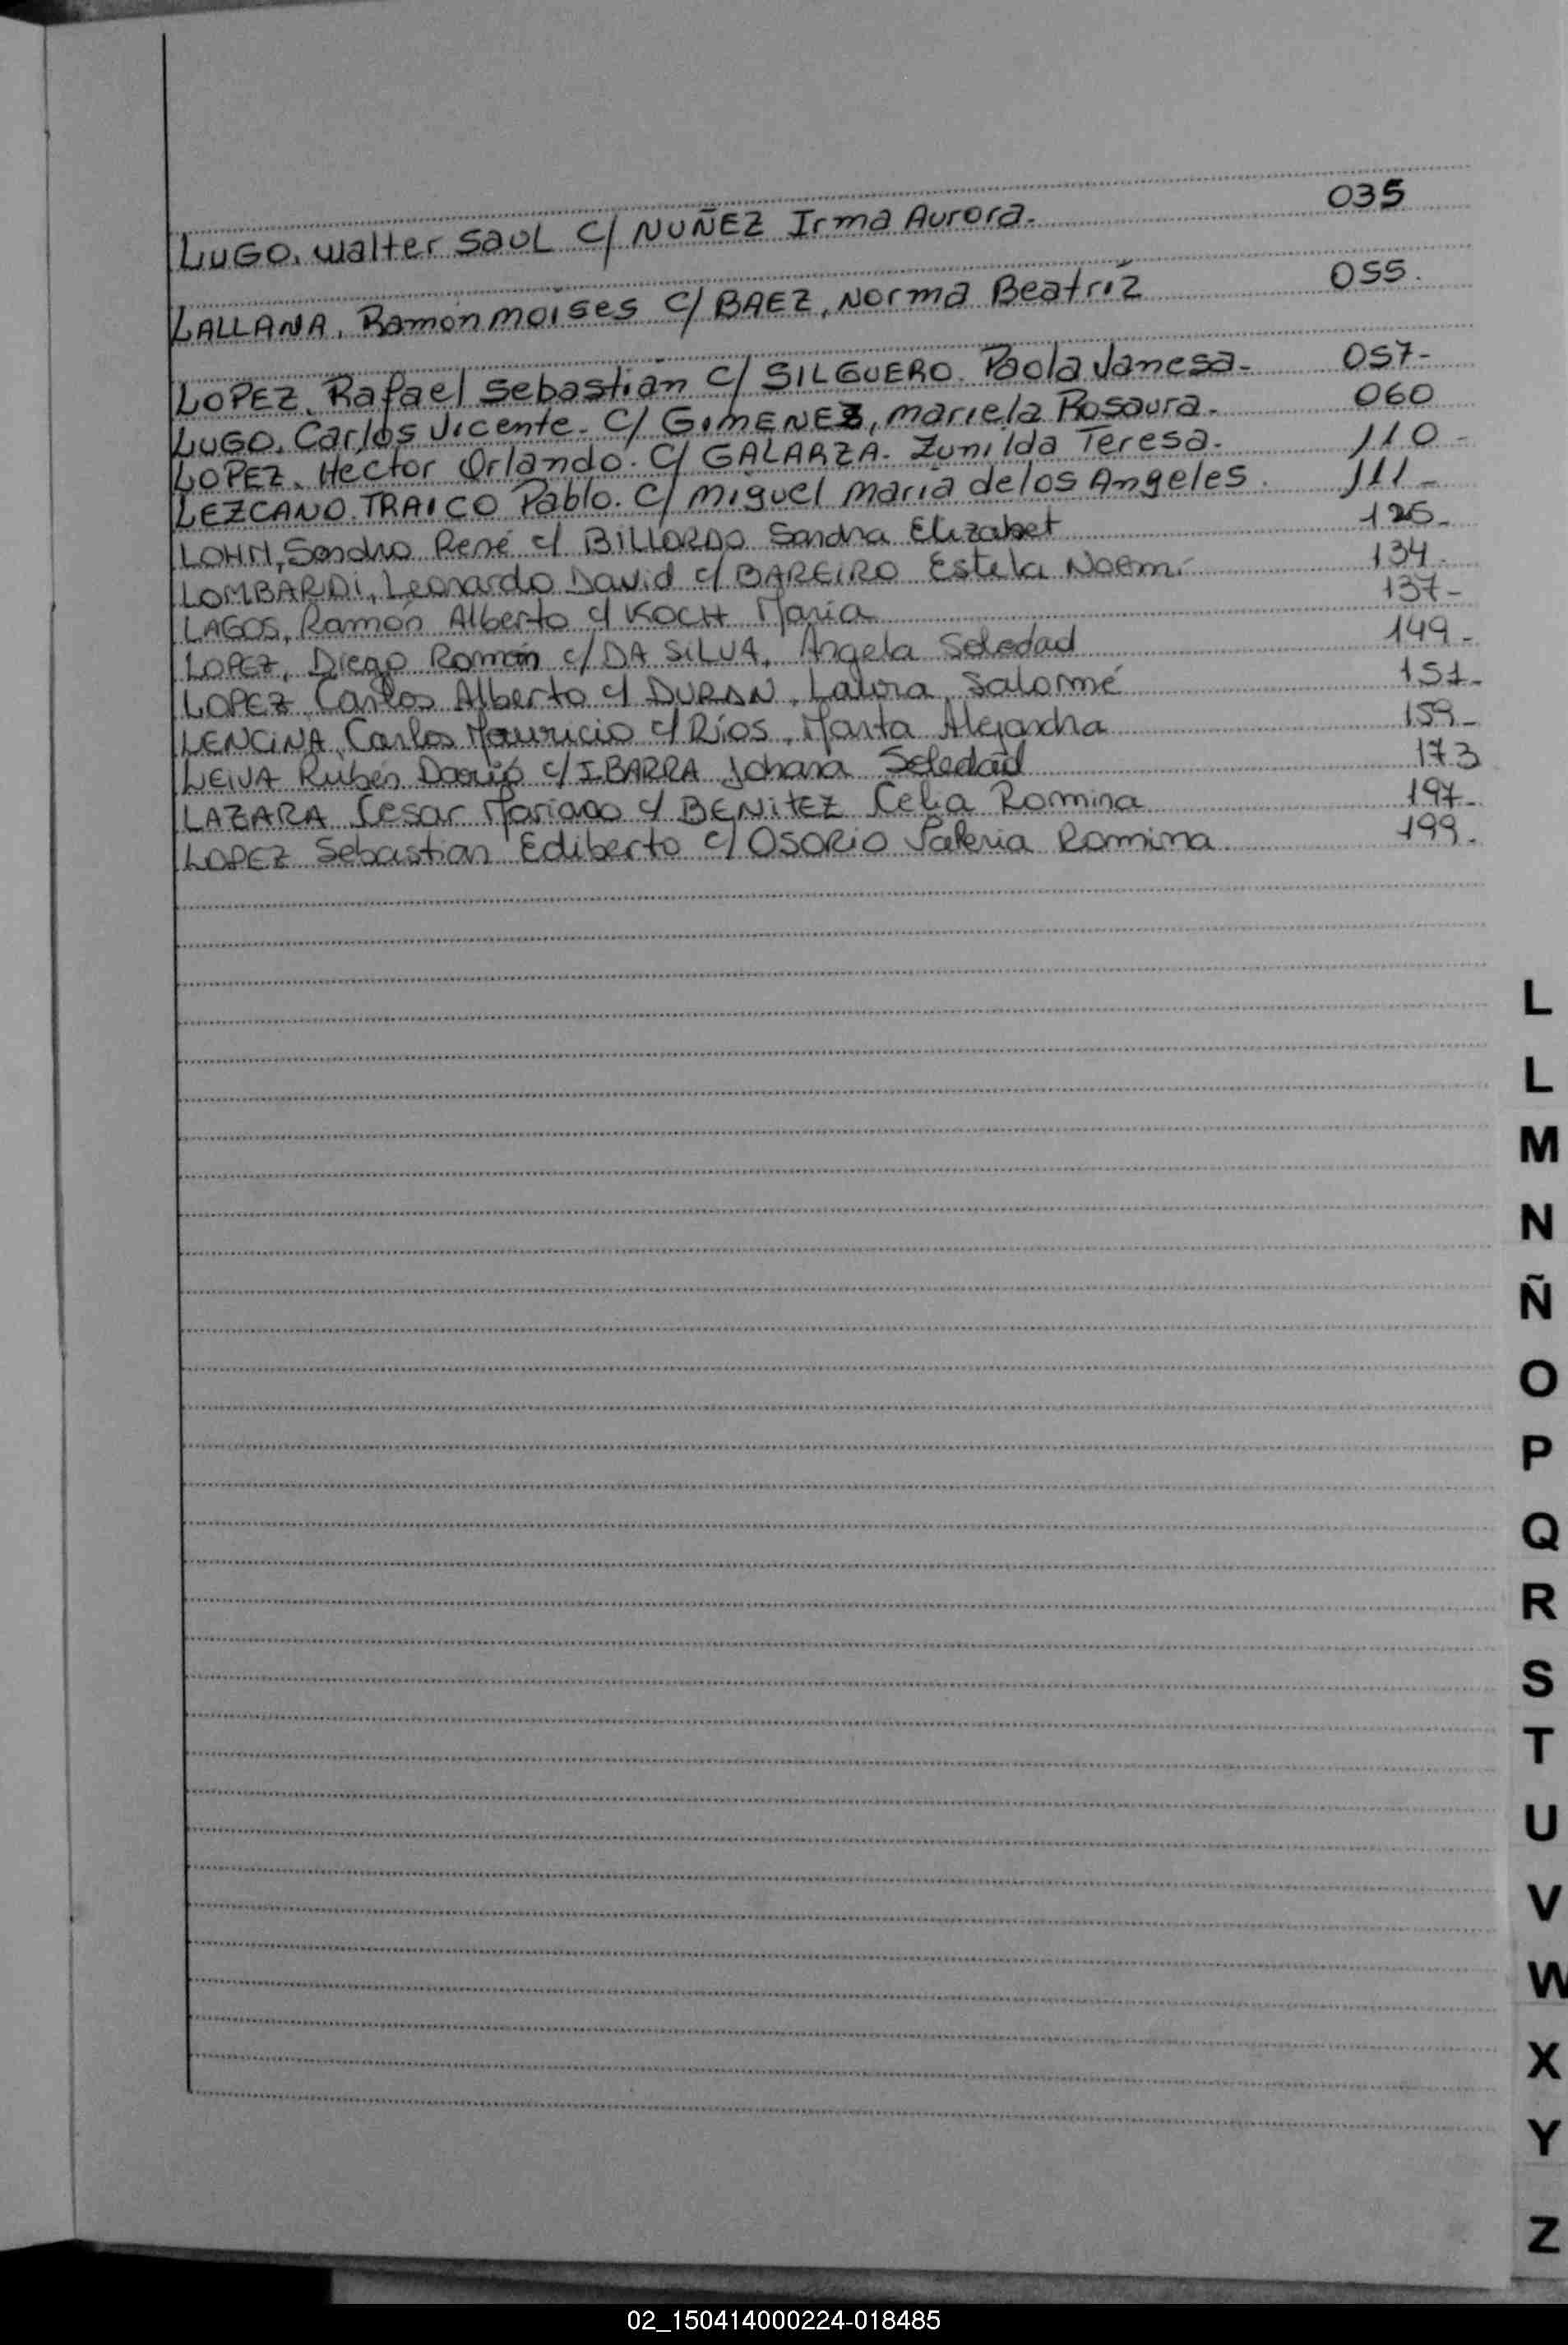 LUGO. Walter SAUL C/ NUÑEZ Irma Aurora. 035
LALLANA. Ramón moises C/ BAEZ, Norma Beatríz 055.
LOPEZ. Rafael Sebastián C/ SILGUERO. Paola Vanesa. 057-
LUGO. Carlos Vicente. C/ GIMENEZ, Mariela Rosaura. 060
LOPEZ. Héctor Orlando. C/ GALARZA. Zunilda Teresa. 110-
LEZCANO. TRAICO Pablo. C/ Miguel María de los Angeles. 111-
LOHN, Sandro René c/ BILLORDO Sandra Elizabet 125-
LOMBARDI, Leonardo David c/ BAREIRO Estela Noemi 134.
LAGOS, Ramón Alberto c/ KOCH María 137-
LOPEZ, Diego Román c/ DA SILVA, Angela Soledad 149-
LOPEZ, Carlos Alberto c/ DURAN, Laura Salomé 151-
LENCINA, Carlos Mauricio c/ Ríos, Marta Alejandra 159-
LEIVA Rubén Darío c/ IBARRA Johana Soledad 173
LAZARA Cesar Mariano c/ BENITEZ Celia Romina 197-
LOPEZ Sebastian Ediberto c/ OSORIO Valeria Romina. 199.
L
L
M
N
Ñ
O
P
Q
R
S
T
U
V
W
X
Y
Z
02_150414000224-018485